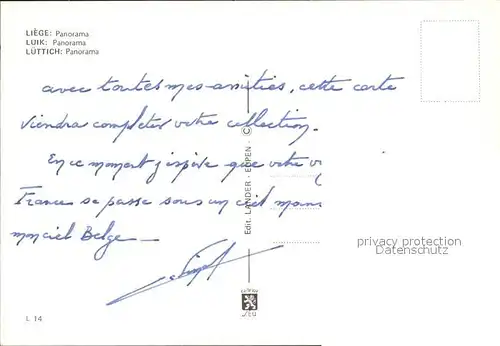 LIÈGE: Panorama
LUIK: Panorama
LÜTTICH: Panorama
avec toutes mes amitiés, cette carte
viendra completer votre collection.
En ce moment j'espère que votre
France se passe sous un ciel
mon ciel Belge
Edit. LANDER - EUPEN - C
privacy protection
Datenschutz
L 14